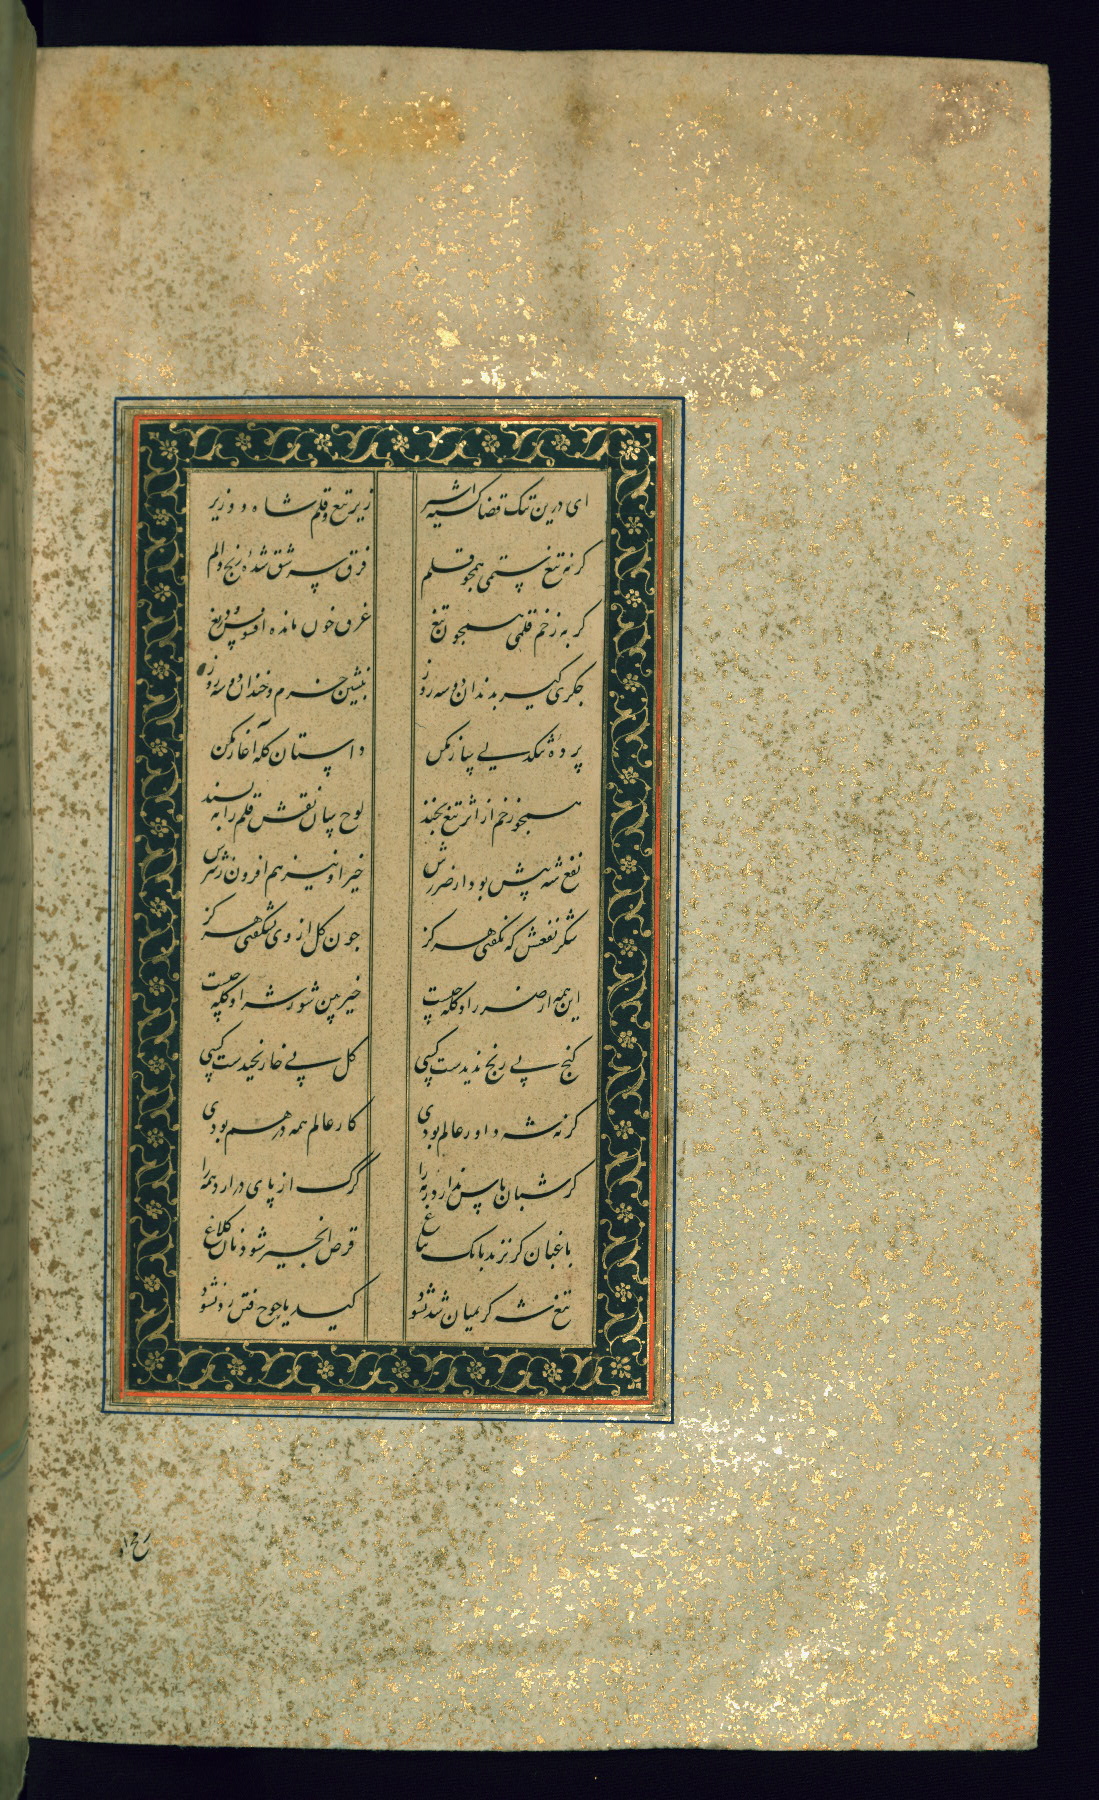 ای درین تنک قضا کسیه اشیر زیر تیغ و قلم شاه و وزیر
کرنه تیغ ستمی همچو قلم فرق سر شق شدهٔ رنج و الم
کر به زخم قلمی همچون تیغ غرق خون مانده افسوس و دریغ
جکری کیر بدندان دو سه روز بنشین خرم و خندان دو سه روز
پردهٔ شکدلیی ساز مکن داستان کله آغاز مکن
همچو زخم از اثر تیغ بخند لوح سان نقش قلم را به پسند
نفع شه بیش بود از ضررش خیر او نیز هم افزون ز شرش
شکر نفعش که نکفتی هرکز چون کل از وی نشکفتی هرکز
این همه از ضرر او کله چیست خیر بین شو ز شر او کله چیست
کنج بی رنج ندیدست کسی کل بی خار نچیدست کسی
کرنه شه داور عالم بودی کار عالم همه درهم بودی
کر شبان پاس ندارد رمه را کرک از پای درارد همه را
باغبان کر نزند بانک بباغ قرص انجیر شود نان کلاغ
تیغ شه کر بمیان شد نشود کید یاجوج فتن رد نشود